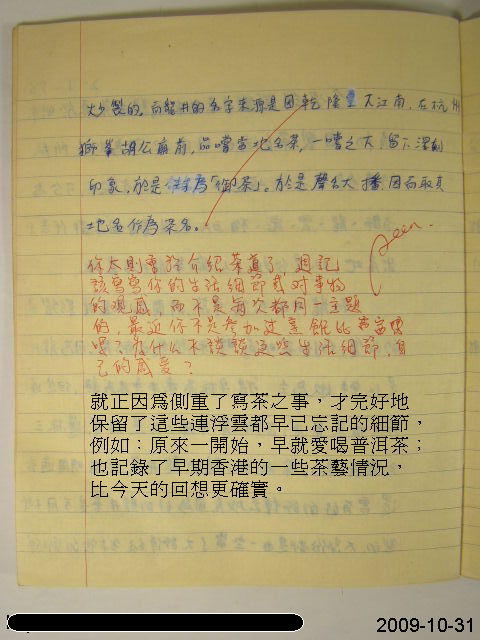 炒製的,而龍井的名字來源是因乾隆皇下江南,在杭州
獅峯胡公廟前,品嚐當地名茶,一嚐之下,留下深刻
印象,於是 為「御茶」。於是聲名大播,因而取其
地名作為茶名。
seen.
你太則重於介紹茶道了,週記
該寫寫你的生活細節或对事物
的观感,而不是每次都用一主题
的,最近你不是参加过
吗?为什么不谈谈这些生活细節,自
己的感受?
就正因爲側重了寫茶之事,才完好地
保留了這些連浮雲都早已忘記的細節,
例如:原來一開始,早就愛喝普洱茶;
也記錄了早期香港的一些茶藝情況,
比今天的回想更確實。
2009-10-31